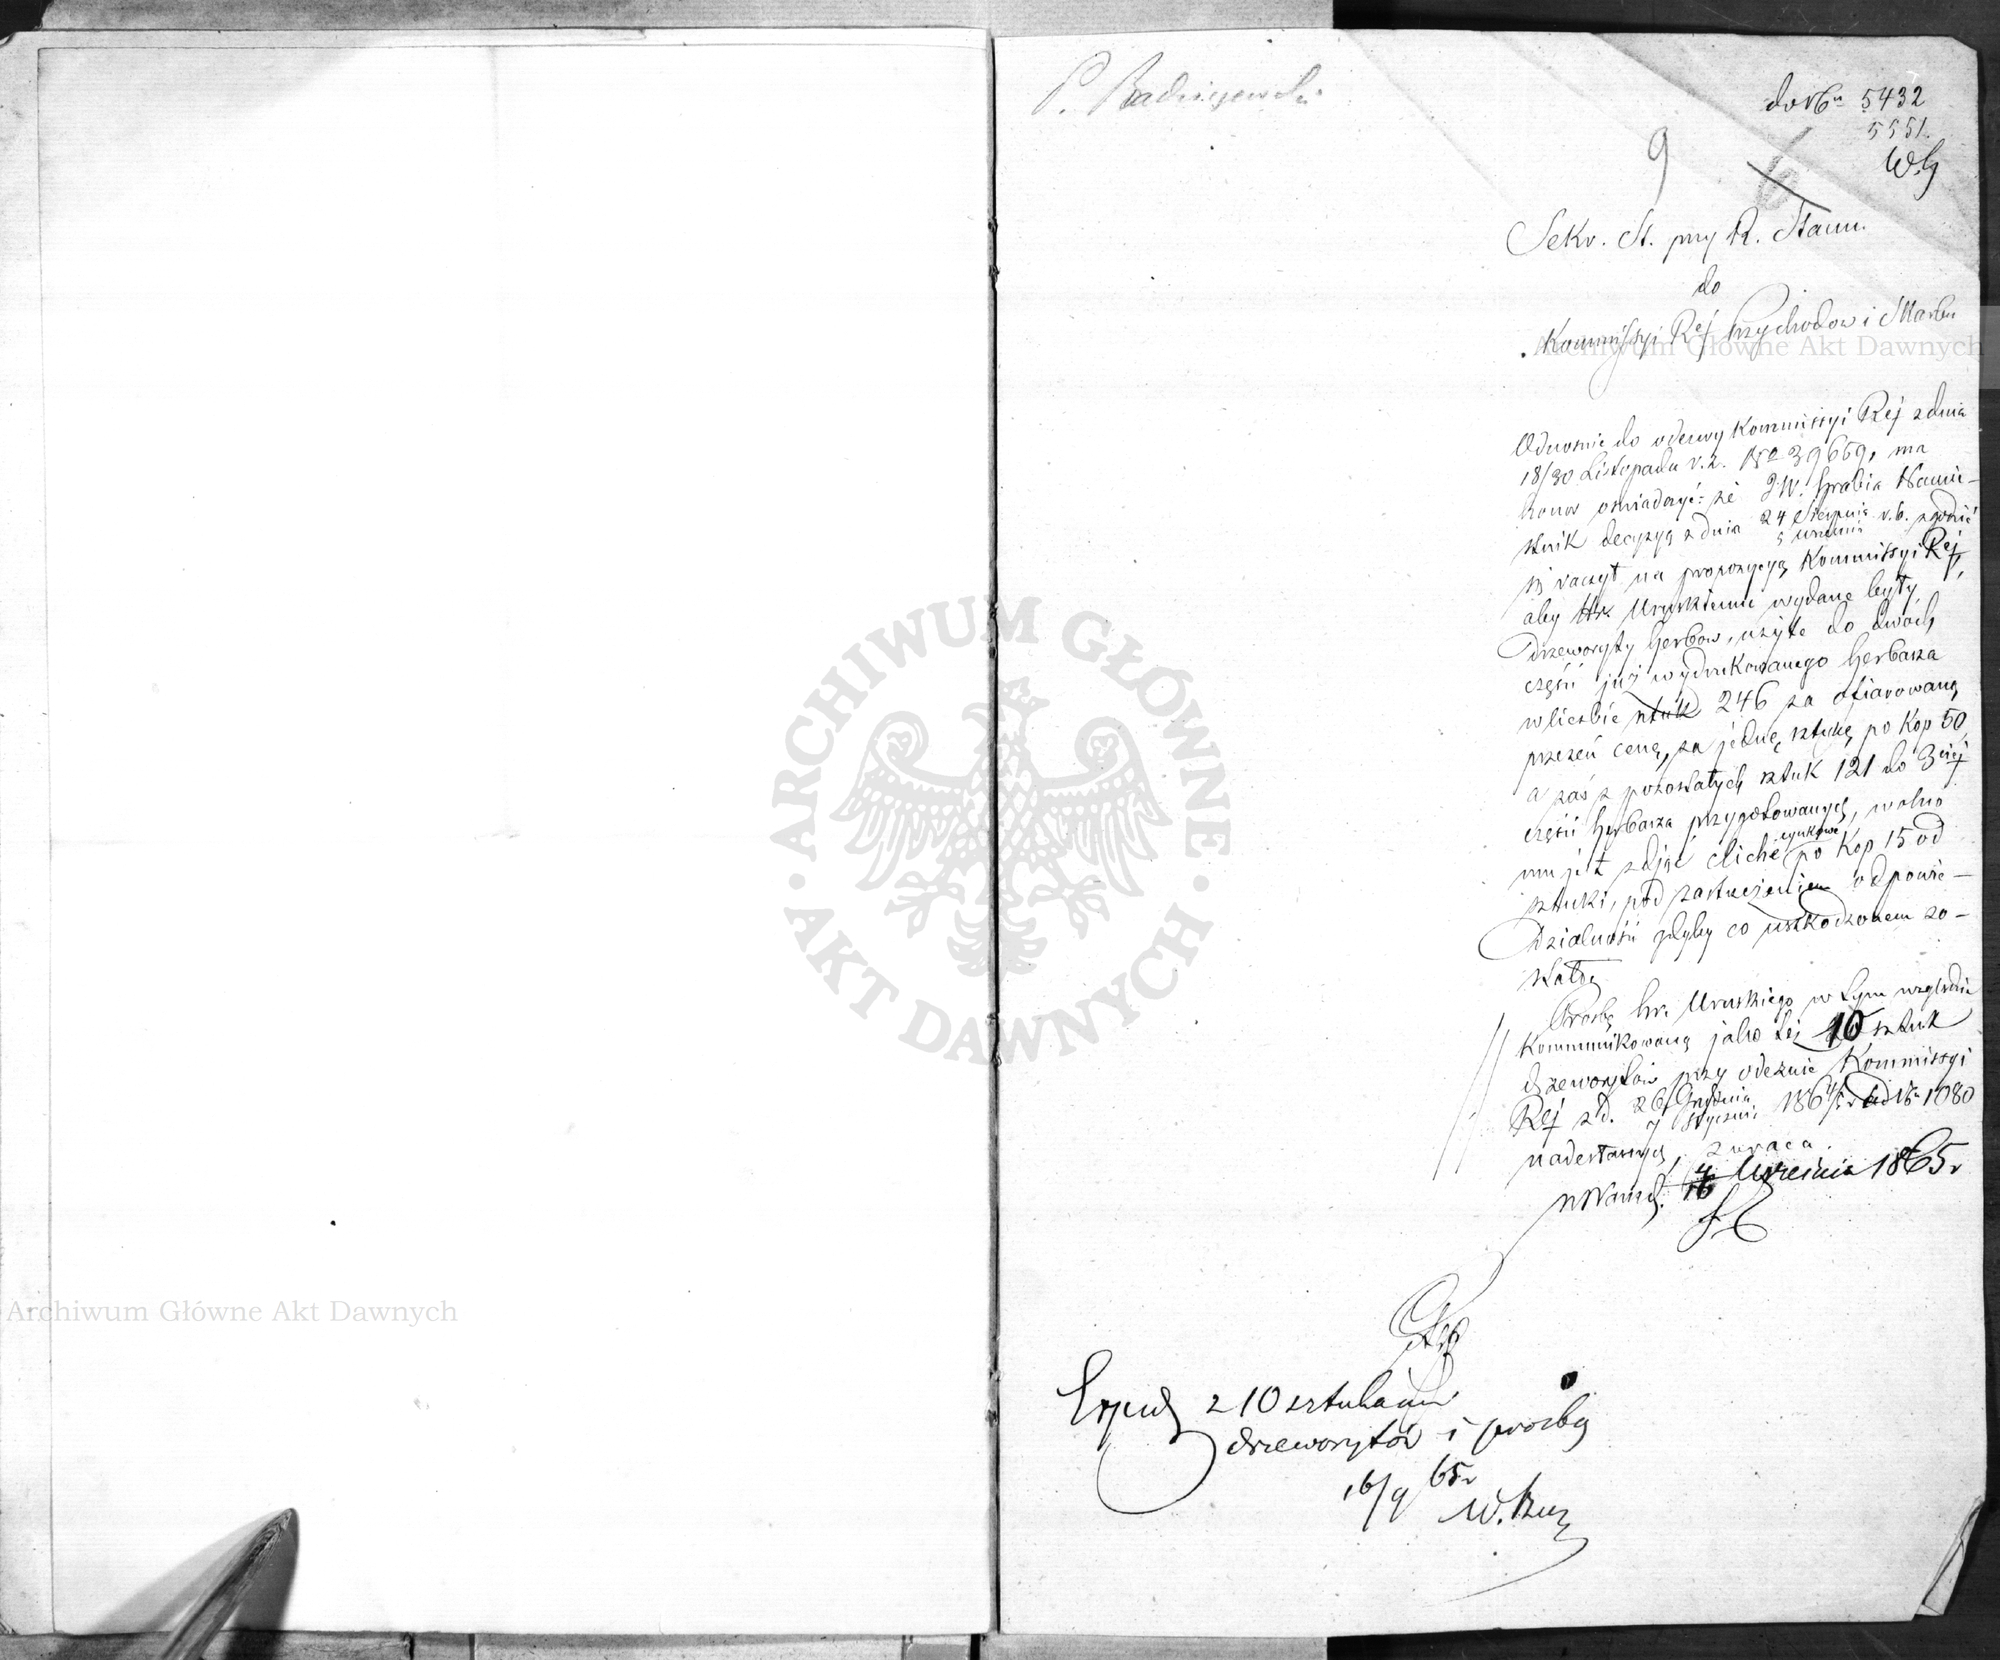 P. Radziszewski
do № 5432
5551
9
6
Sekr. St. przy R. Stanu.
do
Kommissyi Rej Przychodów i Skarbu
Odnośnie do odezwy Kommissyi Rej z dnia
18/30 Listopada r. z. No 39659, ma
honor oświadczyć: że JW. Hrabia Namie-
stnik decyzyą z dnia 24 Sierpnia r. b. zgodzić
5 Września
się raczył na propozycyą Kommissyi Rej,
aby Hr. Uruskiemu wydane były
drzeworyty herbów, użyte do dwóch
części już wydrukowanego herbarza
w liczbie sztuk 246 za ofiarowaną
przezeń cenę, za jedną sztukę po Kop 50,
a zaś z pozostałych sztuk 121 do 3ciej
części herbarza przygotowanych, wolno
mu jest zdjąć cliché cynkowe po Kop 15 od
sztuki, pod zastrzeżeniem odpowie-
dzialności gdyby co uszkodzonem zo-
stało,
Prośbę hr. Uruskiego w tym względzie
kommunikowaną jako też 10 sztuk
drzeworytów przy odezwie Kommissyi
Rej z d. 26 Grudnia
7 Stycznia 186 4/5 r. № 1080
nadesłanych, zwraca.
w Warsz. 4/16 Września 1865 r
Exped z 10 sztukami
drzeworytów i prośbą
16/9 65 r
Archiwum Główne Akt Dawnych
Archiwum Główne Akt Dawnych
ARCHIWUM GŁÓWNE
AKT DAWNYCH